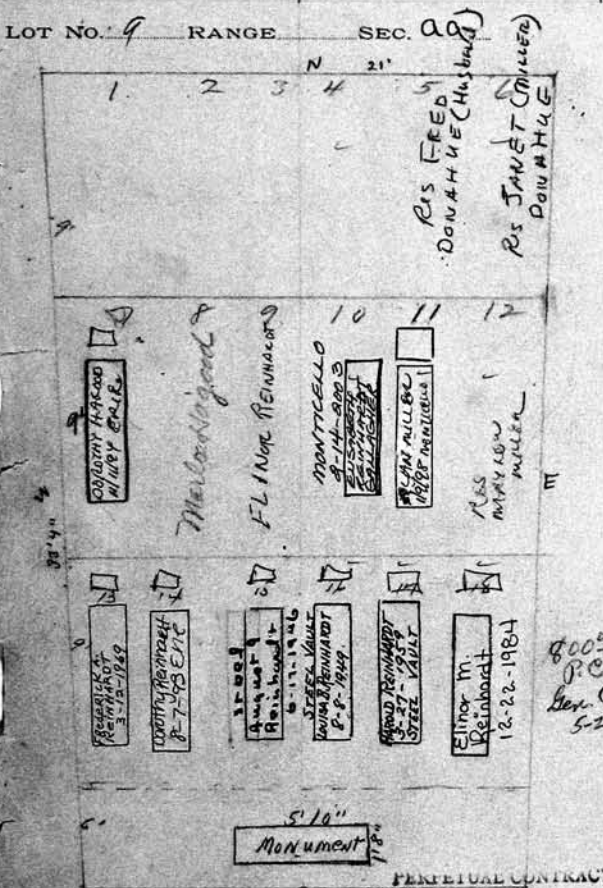 LOT NO. 9 RANGE SEC. aa
N 21'
1 2 3 4 5 6
Res FRED
DONAHUE (Husband)
Res JANET (MILLER)
DONAHUE
9'
8 9 10 11 12
DOROTHY HAGOOD
Marlo Hagood
ELINOR REINHARDT
MONTICELLO
8-14-2003
ELISABETH
REINHARDT
GALLAGHER
ALAN MILLER
Monticello
Res
MAYHEW
MILLER
E
FREDERICK A.
REINHARDT
3-12-1969
Dorothy Reinhardt
8-7-93 ERIE
Steel
August
Reinhardt
6-17-1946
STEEL VAULT
LOUISA B. REINHARDT
8-8-1949
HAROLD REINHARDT
3-27-1959
STEEL VAULT
Elinor M.
Reinhardt
12-22-1984
P.C
Gen.
6'
5'10"
MONUMENT
1'8"
PERPETUAL CONTRAC